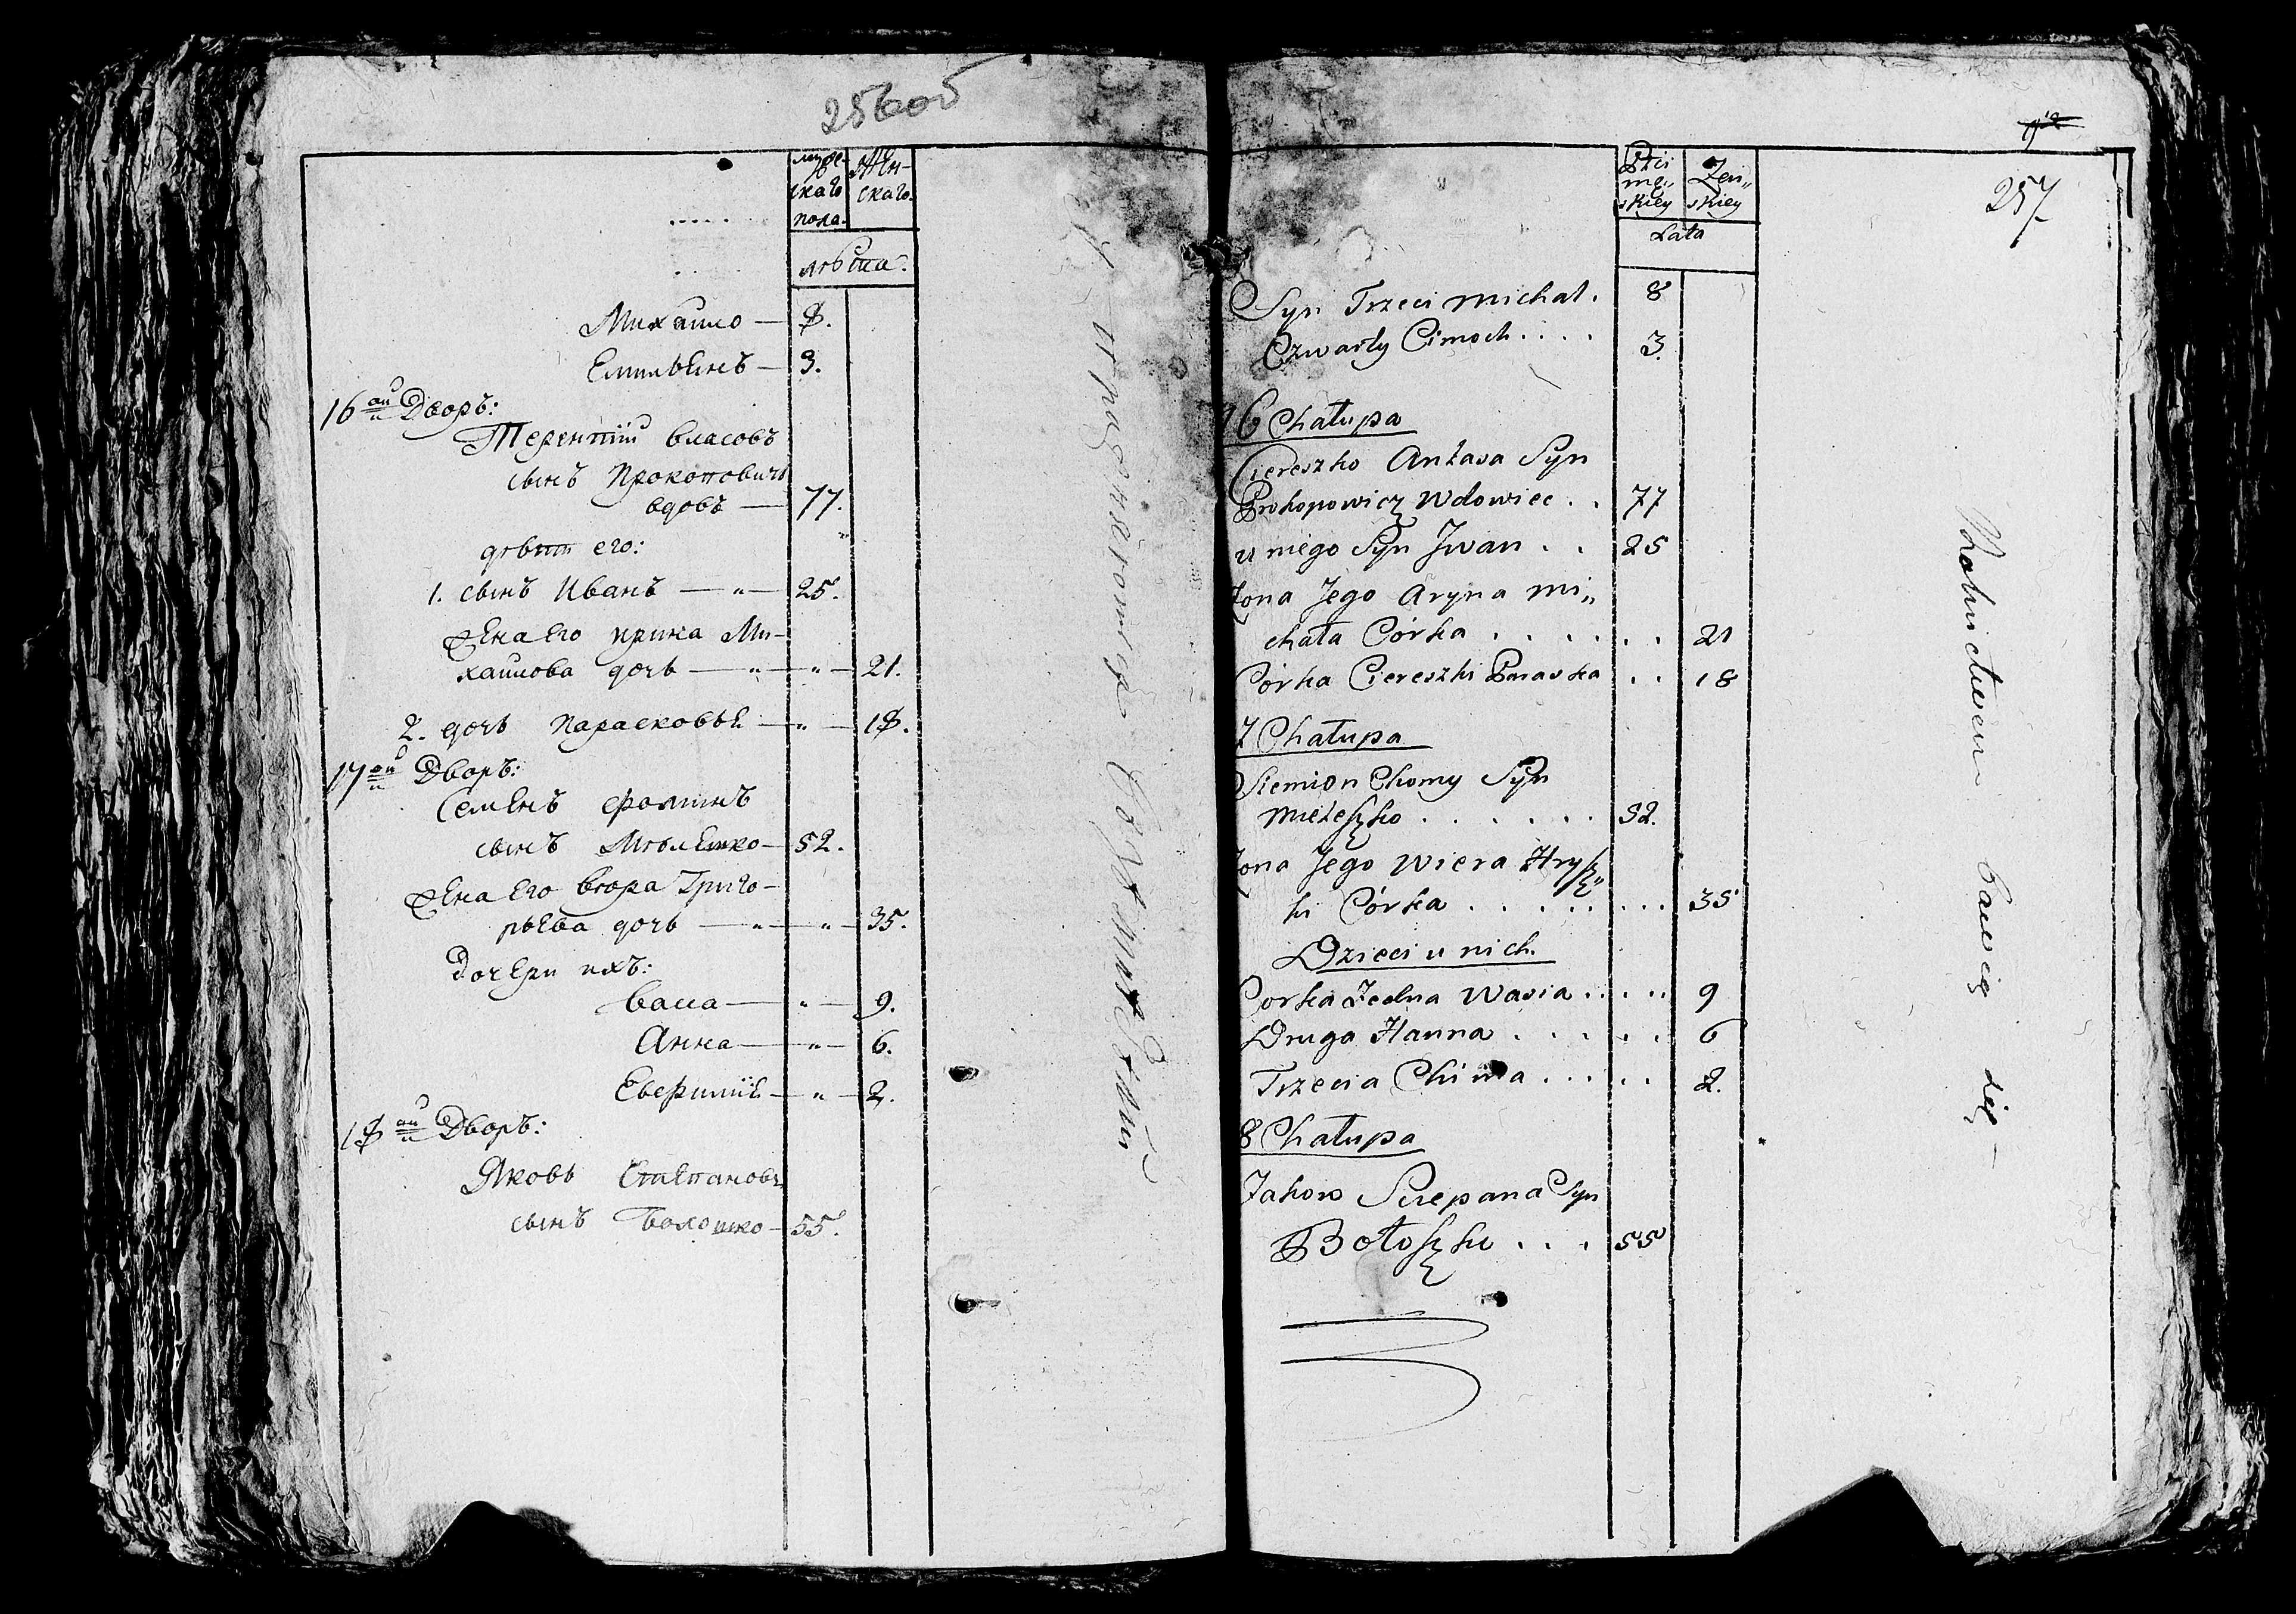 256 об
муже-
скаго
пола.
Жен-
скаго.
лѣта.
Михайло — 8.
Емильянъ — 3.
16ой Дворъ:
Терентiй Власовъ
сынъ Прокоповичъ
вдовъ — 77.
дѣти его:
1. сынъ Иванъ — „ — 25.
Жена его Ирина Ми-
хайлова дочь — „ — „ — 21.
2. дочь Парасковья — „ — 18.
17ой Дворъ:
Семенъ Фоминъ
сынъ Мѣлешко — 52.
Жена его Вѣра Григо-
рьева дочь — „ — „ — 35.
Дочери ихъ:
Васа — „ — 9.
Анна — „ — 6.
Евфимiя — „ — 2.
18ой Дворъ:
Яковъ Степановъ
сынъ Болошко — 55.
257
Płci
mę„
skiey
Żeń„
skiey
Lata
Syn Trzeci Michał . 8
Czwarty Cimoch . . . . 3.
16 Chałupa
Ciereszko Aułasa Syn
Prokopowicz Wdowiec . . 77
u niego Syn Jwan . . 25
Żona Jego Aryna Mi„
chała Córka . . . . . . 21
Córka Ciereszki Paraska . . 18
7 Chałupa
Siemion Chomy Syn
Mieleszko . . . . . . 52.
Żona Jego Wiera Hrysz„
ki Córka . . . . . . . . 35
Dzieci u nich.
Corka Jedna Wasia . . . . . 9
Druga Hanna . . . . . . 6
Trzecia Chima . . . . . 2.
8 Chałupa
Jakow Sciepana Syn
Bołoszko . . . 55